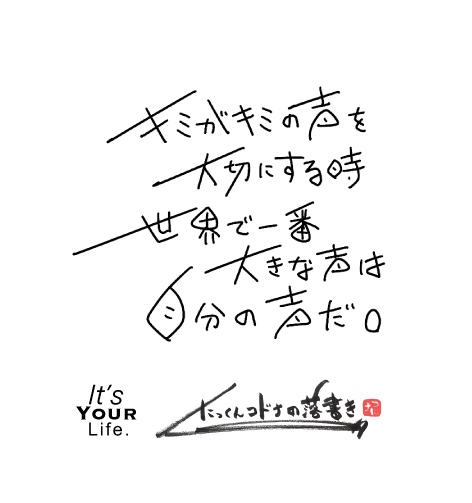 キミがキミの声を
大切にする時
世界で一番
大きな声は
自分の声だ。
It's
YOUR
Life.
たっくんコドナの落書き